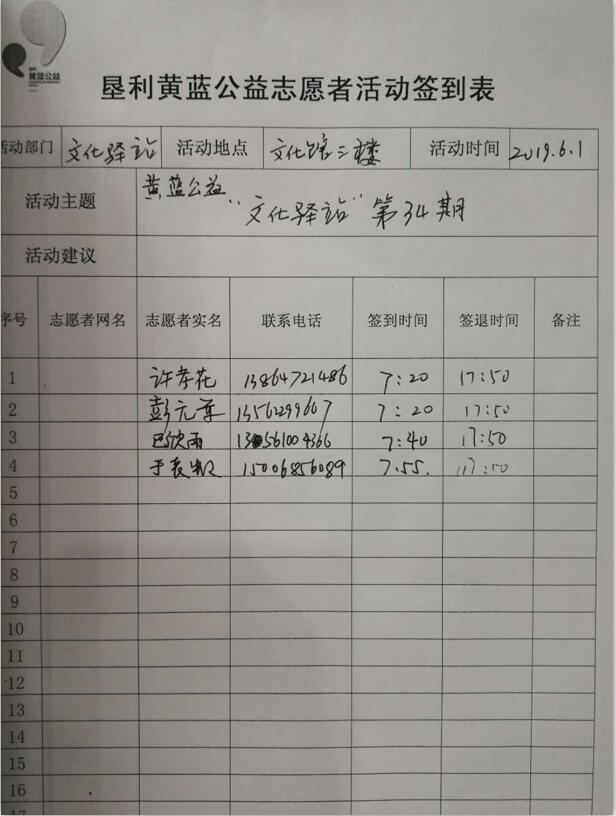 黄蓝公益
垦利黄蓝公益志愿者活动签到表
活动部门 文化驿站 活动地点 文化馆三楼 活动时间 2019.6.1
活动主题 黄蓝公益
“文化驿站”第34期
活动建议
序号 志愿者网名 志愿者实名 联系电话 签到时间 签退时间 备注
1 许孝花 13864721486 7:20 17:50
2 彭元 7:20 17:50
3 巴饮雨 7:40 17:50
4 于 15006856089 7.55. 17:50
5
6
7
8
9
10
11
12
13
14
15
16
17